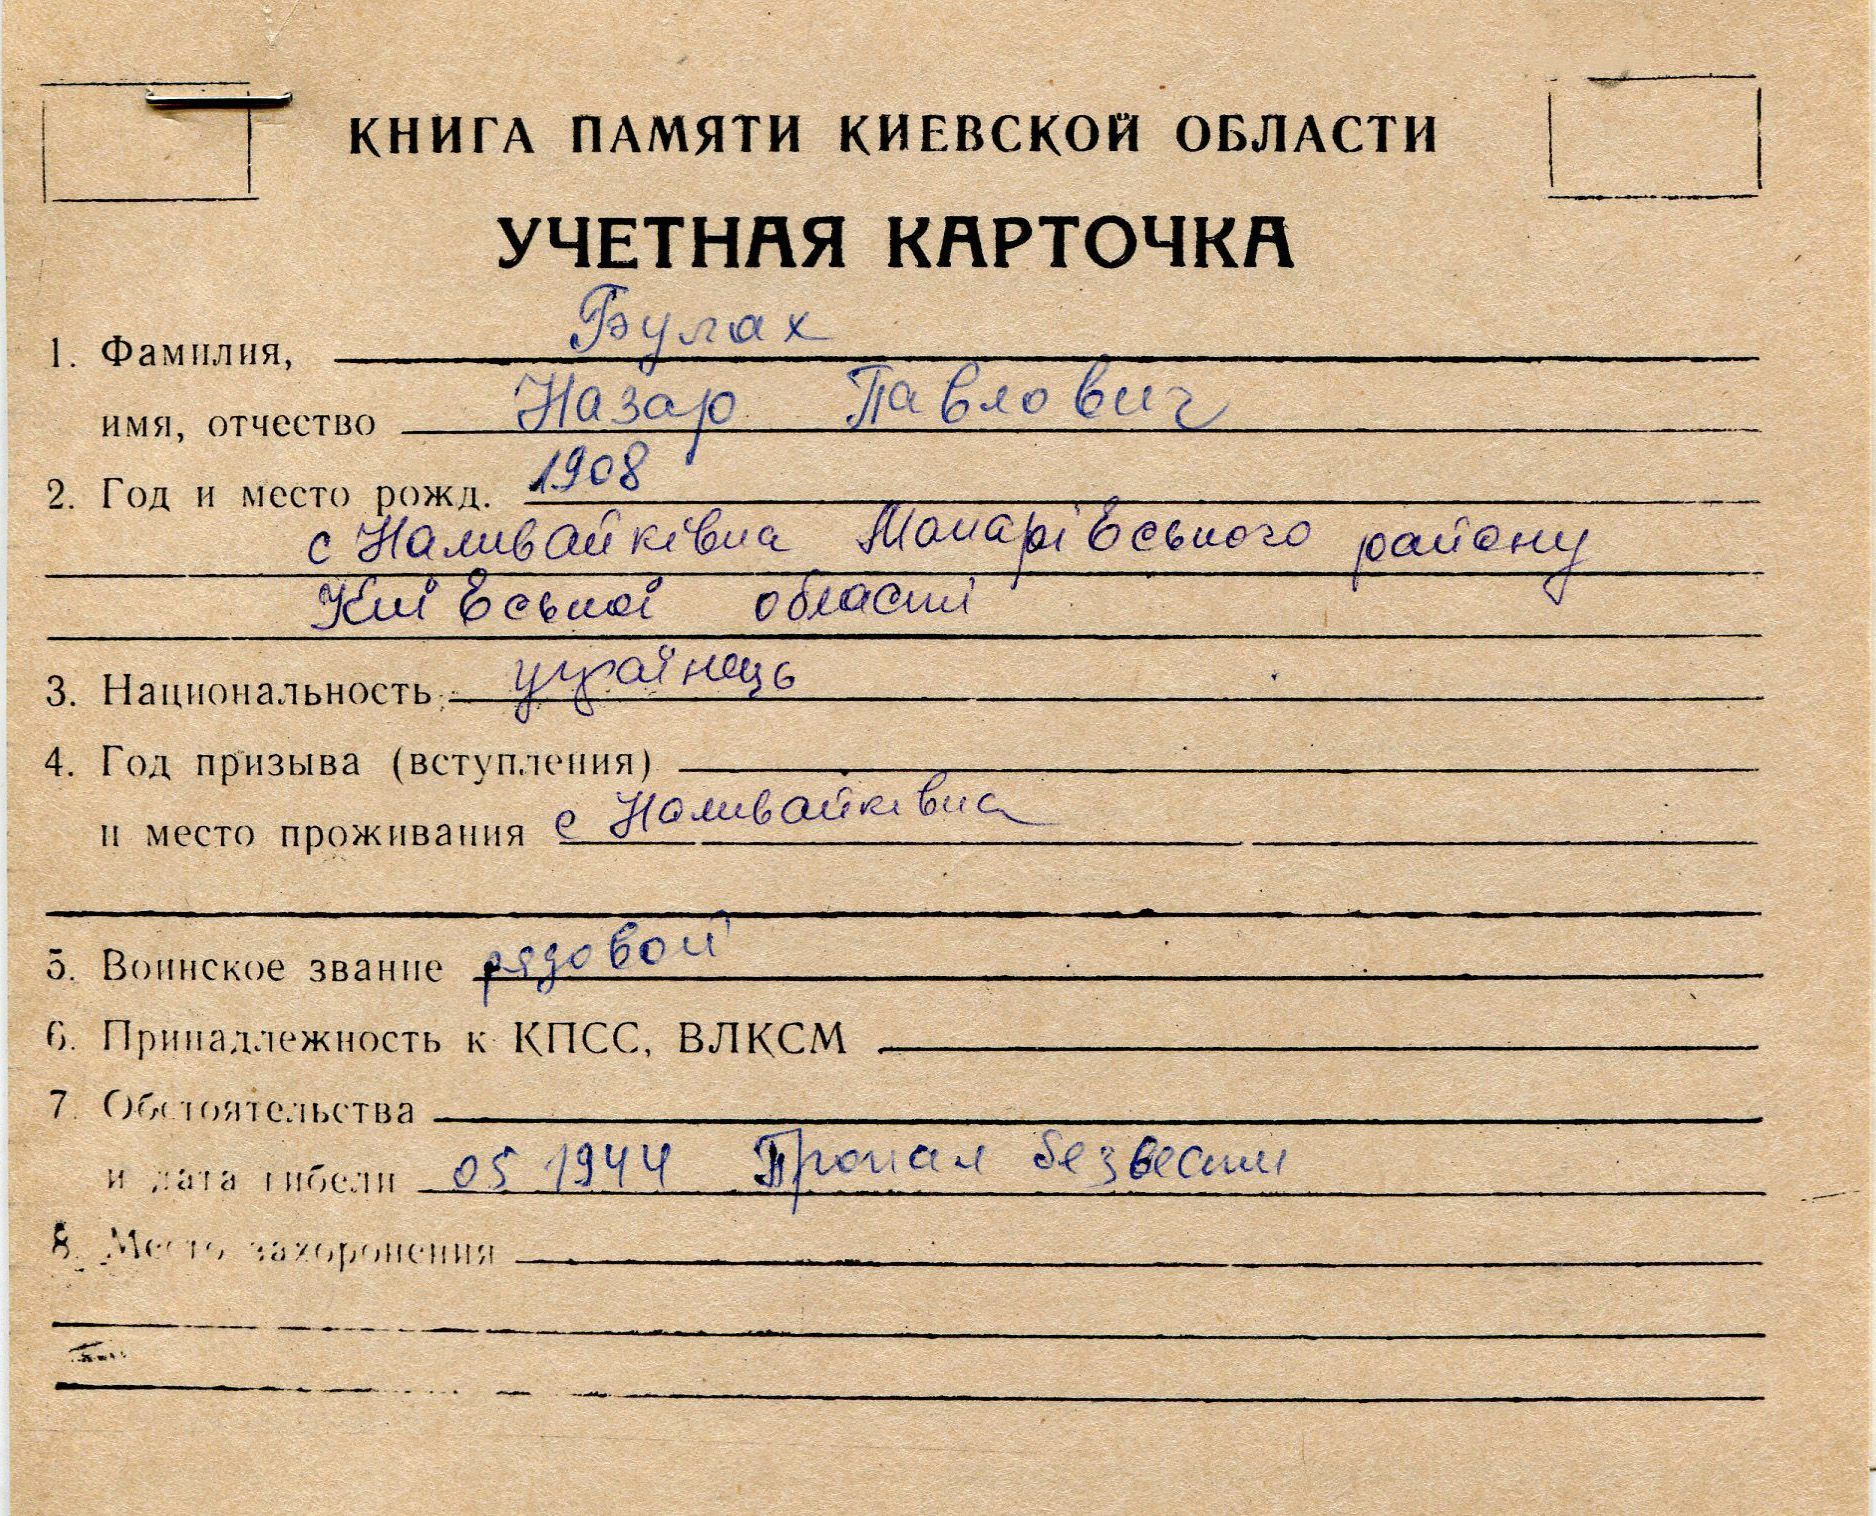 КНИГА ПАМЯТИ КИЕВСКОЙ ОБЛАСТИ
УЧЕТНАЯ КАРТОЧКА
1. Фамилия, Булах
имя, отчество Назар Павлович
2. Год и место рожд. 1908
с Наливайківка Макарівського району
Київської області
3. Национальность українець
4. Год призыва (вступления)
и место проживания с Наливайківка
5. Воинское звание рядовой
6. Принадлежность к КПСС, ВЛКСМ
7. Обстоятельства
и дата гибели 05 1944 Пропал безвести
8. Место захоронения